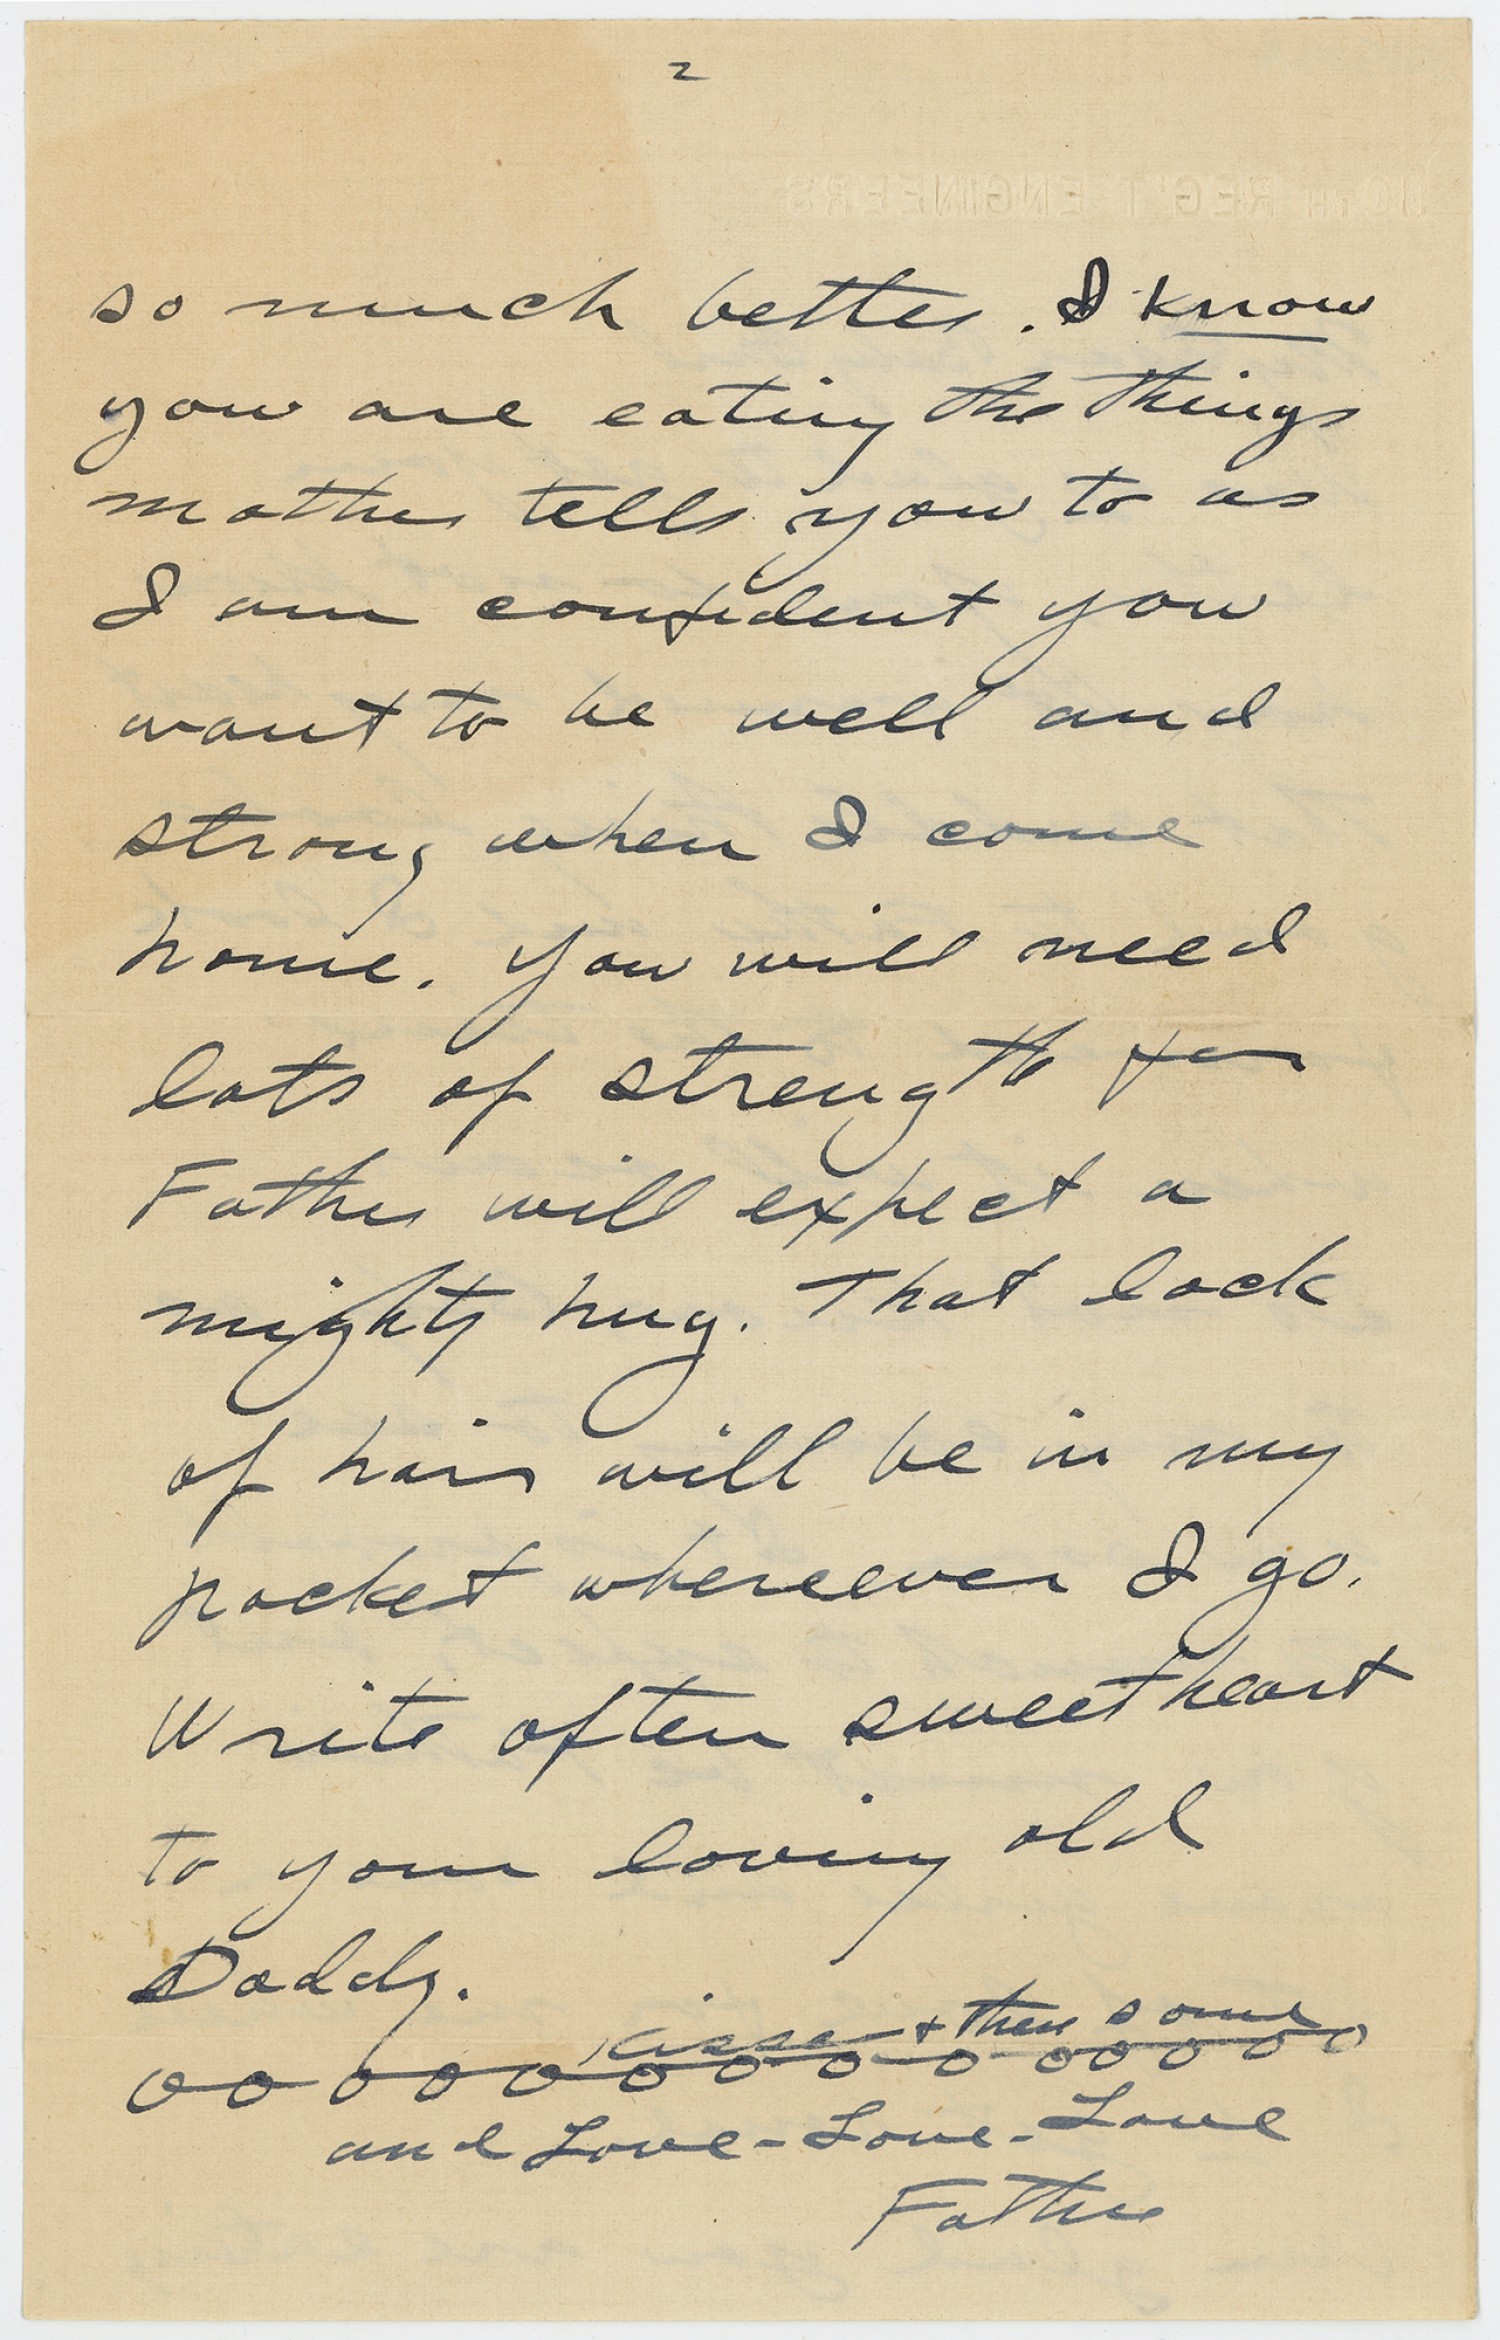 2
110TH REG'T ENGINEERS
so much better. I know
you are eating the things
mother tells you to as
I am confident you
want to be well and
strong when I come
home. You will need
lots of strength for
Father will expect a
mighty hug. That lock
of hair will be in my
pocket whereever I go.
Write often sweetheart
to your loving old
Daddy.
kisses + then some
o o o o o o o o o o o o o o o
and Love - Love - Love
Father